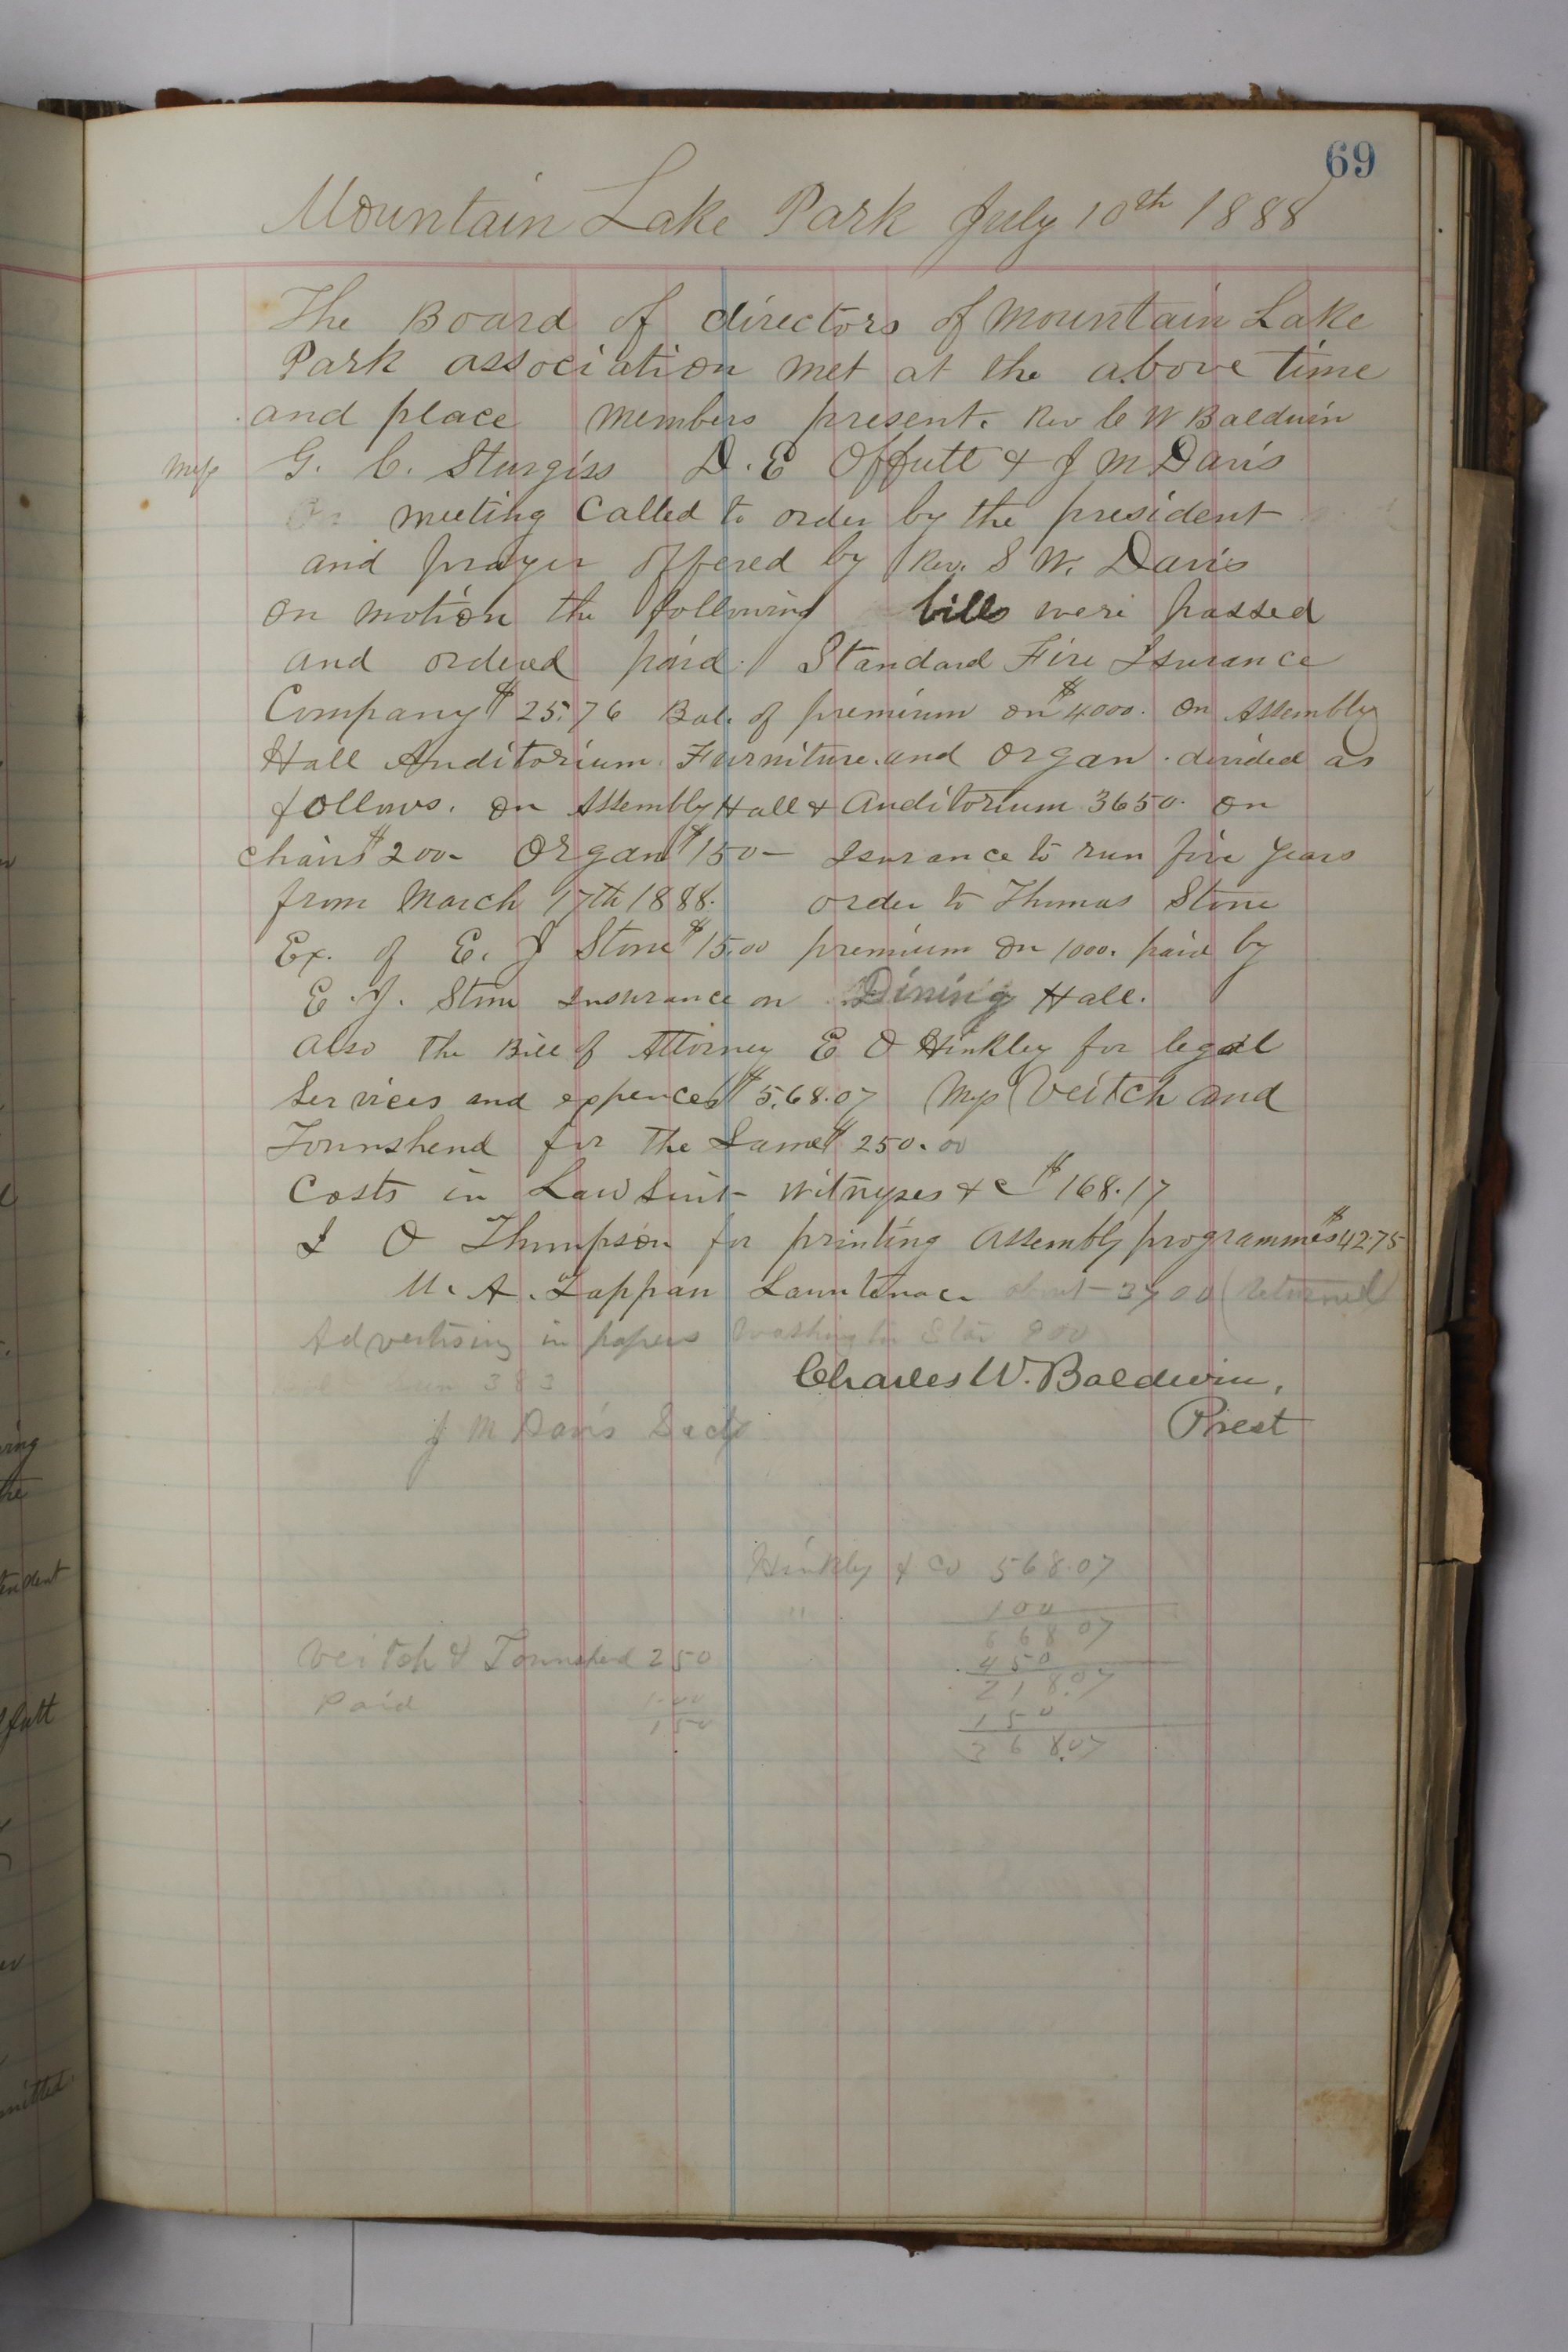 69
Mountain Lake Park July 10th 1888
The Board of directors of Mountain Lake
Park association met at the above time
and place members present. Rev C W Baldwin
Mess G. C. Sturgiss D. E Offutt & J M Davis
meeting called to order by the president
and prayer offered by Rev. S W. Davis
on motion the following bills were passed
and ordered paid. Standard Fire Isurance
Company $25.76 Bal. of premium on $4000. On Assembly
Hall Auditorium Furniture and organ. devided as
follows. On Assembly Hall & Auditorium 3650. on
chairs $200- Organ $150- Isurance to run five years
from March 17th 1888. order to Thomas Stone
Ex. of E. J Stone $15.00 premium on 1000. paid by
E. J. Stone Insurance on Dining Hall.
Also the Bill of Attorney E O Hinkley for legal
services and expences $568.07 Mess Veitch and
Townshend for the Same $250.00
Costs in Law Suit- witnesses & c $168.17
I O Thompson for printing Assembly programmes $42.75
M. A. Lappan
Advertising in papers Washington Star 900
Sun 383
Charles W. Baldwin,
Prest
J M Davis Secty
Hinkley & Co 568.07
" 100
668 07
450
218.07
150
368.07
Veitch & Townshend 250
Paid 100
150